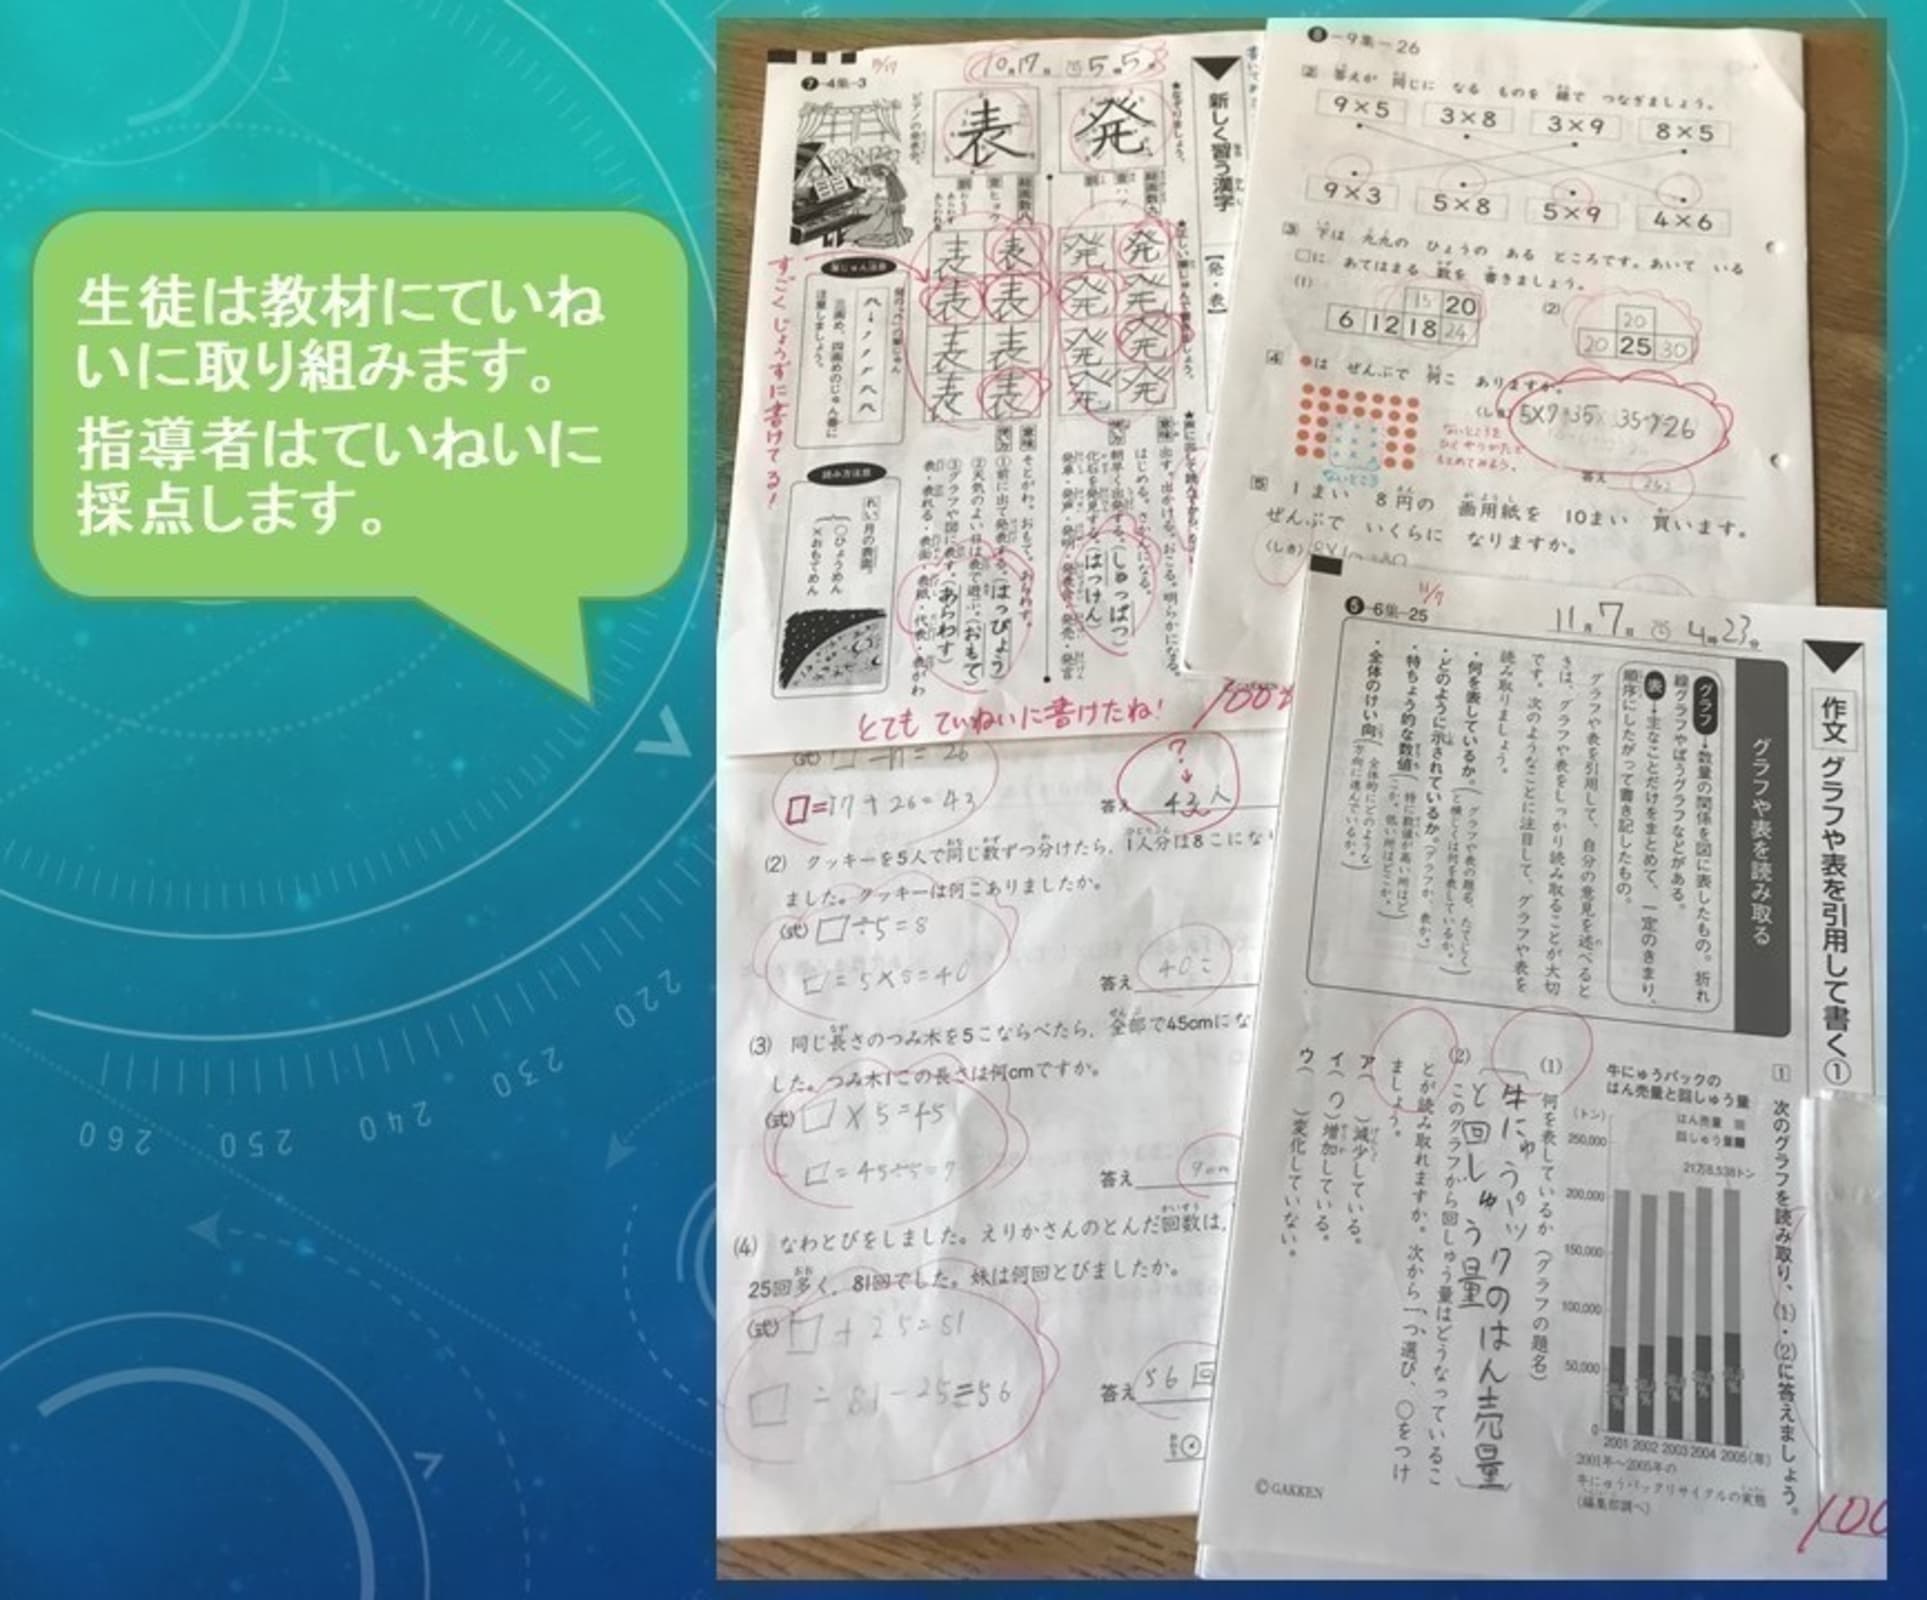 生徒は教材にていね
いに取り組みます。
指導者はていねいに
採点します。
❼-4集-3
10月17日 5時5分
新しく習う漢字
【発・表】
発
表
ピアノの発表会。
すごくじょうずに書けてる！
読み方注意
月の表面。
○ひょうめん
×おもてめん
出す。出かける。おこる。明らかになる。
はじめる。さかんになる。
朝早く出発する。(しゅっぱつ)
化石を発見する。(はっけん)
そとがわ。おもて。あらわす。
①前に出て発表する。(はっぴょう)
②天気のよい日は表で遊ぶ。(おもて)
③グラフや図に表す。(あらわす)
とても ていねいに書けたね！
100点
□=17+26=43
答え 43人
(2) クッキーを5人で同じ数ずつ分けたら、1人分は8こになり
ました。クッキーは何こありましたか。
(式) □÷5=8
□=5×8=40
答え 40こ
(3) 同じ長さのつみ木を5こならべたら、全部で45cmにな
した。つみ木1この長さは何cmですか。
(式) □×5=45
□=45÷5=9
答え 9cm
(4) なわとびをしました。えりかさんのとんだ回数は、
25回多く、81回でした。妹は何回とびましたか。
(式) □+25=81
□=81-25=56
答え 56回
❽-9集-26
2 答えが 同じに なる ものを 線で つなぎましょう。
9×5 3×8 3×9 8×5
9×3 5×8 5×9 4×6
3 下は 九九の ひょうの ある ところです。あいて いる
□に あてはまる 数を 書きましょう。
(1) 15 20
6 12 18 24
(2) 20
20 25 30
4 ●は ぜんぶで 何こ ありますか。
ないところ
ないところを
ひくやりかたで
もとめてみよう。
答え
5 1まい 8円の 画用紙を 10まい 買います。
ぜんぶで いくらに なりますか。
(しき)
11/7
❺-6集-25
11月7日 4時23分
作文 グラフや表を引用して書く①
グラフや表を読み取る
グラフ→数量の関係を図に表したもの。折れ
線グラフやぼうグラフなどがある。
表→主なことだけをまとめて、一定のきまり、
順序にしたがって書き記したもの。
グラフや表を引用して、自分の意見を述べると
きは、グラフや表をしっかり読み取ることが大切
です。次のようなことに注目して、グラフや表を
読み取りましょう。
・何を表しているか。
・どのように示されているか。(グラフか、表か。)
・特ちょう的な数値
・全体のけい向
1 次のグラフを読み取り、(1)・(2)に答えましょう。
牛にゅうパックの
はん売量と回しゅう量
(トン)
はん売量
回しゅう量
21万8,538トン
250,000
200,000
150,000
100,000
50,000
0
2001 2002 2003 2004 2005(年)
2001年～2005年の
牛にゅうパックリサイクルの実態
(編集部調べ)
(1) 何を表しているか（グラフの題名）
牛にゅうパックのはん売量
と回しゅう量
(2) このグラフから回しゅう量はどうなっているこ
とが読み取れますか。次から一つ選び、○をつけ
ましょう。
ア( )減少している。
イ(○)増加している。
ウ( )変化していない。
©GAKKEN
100